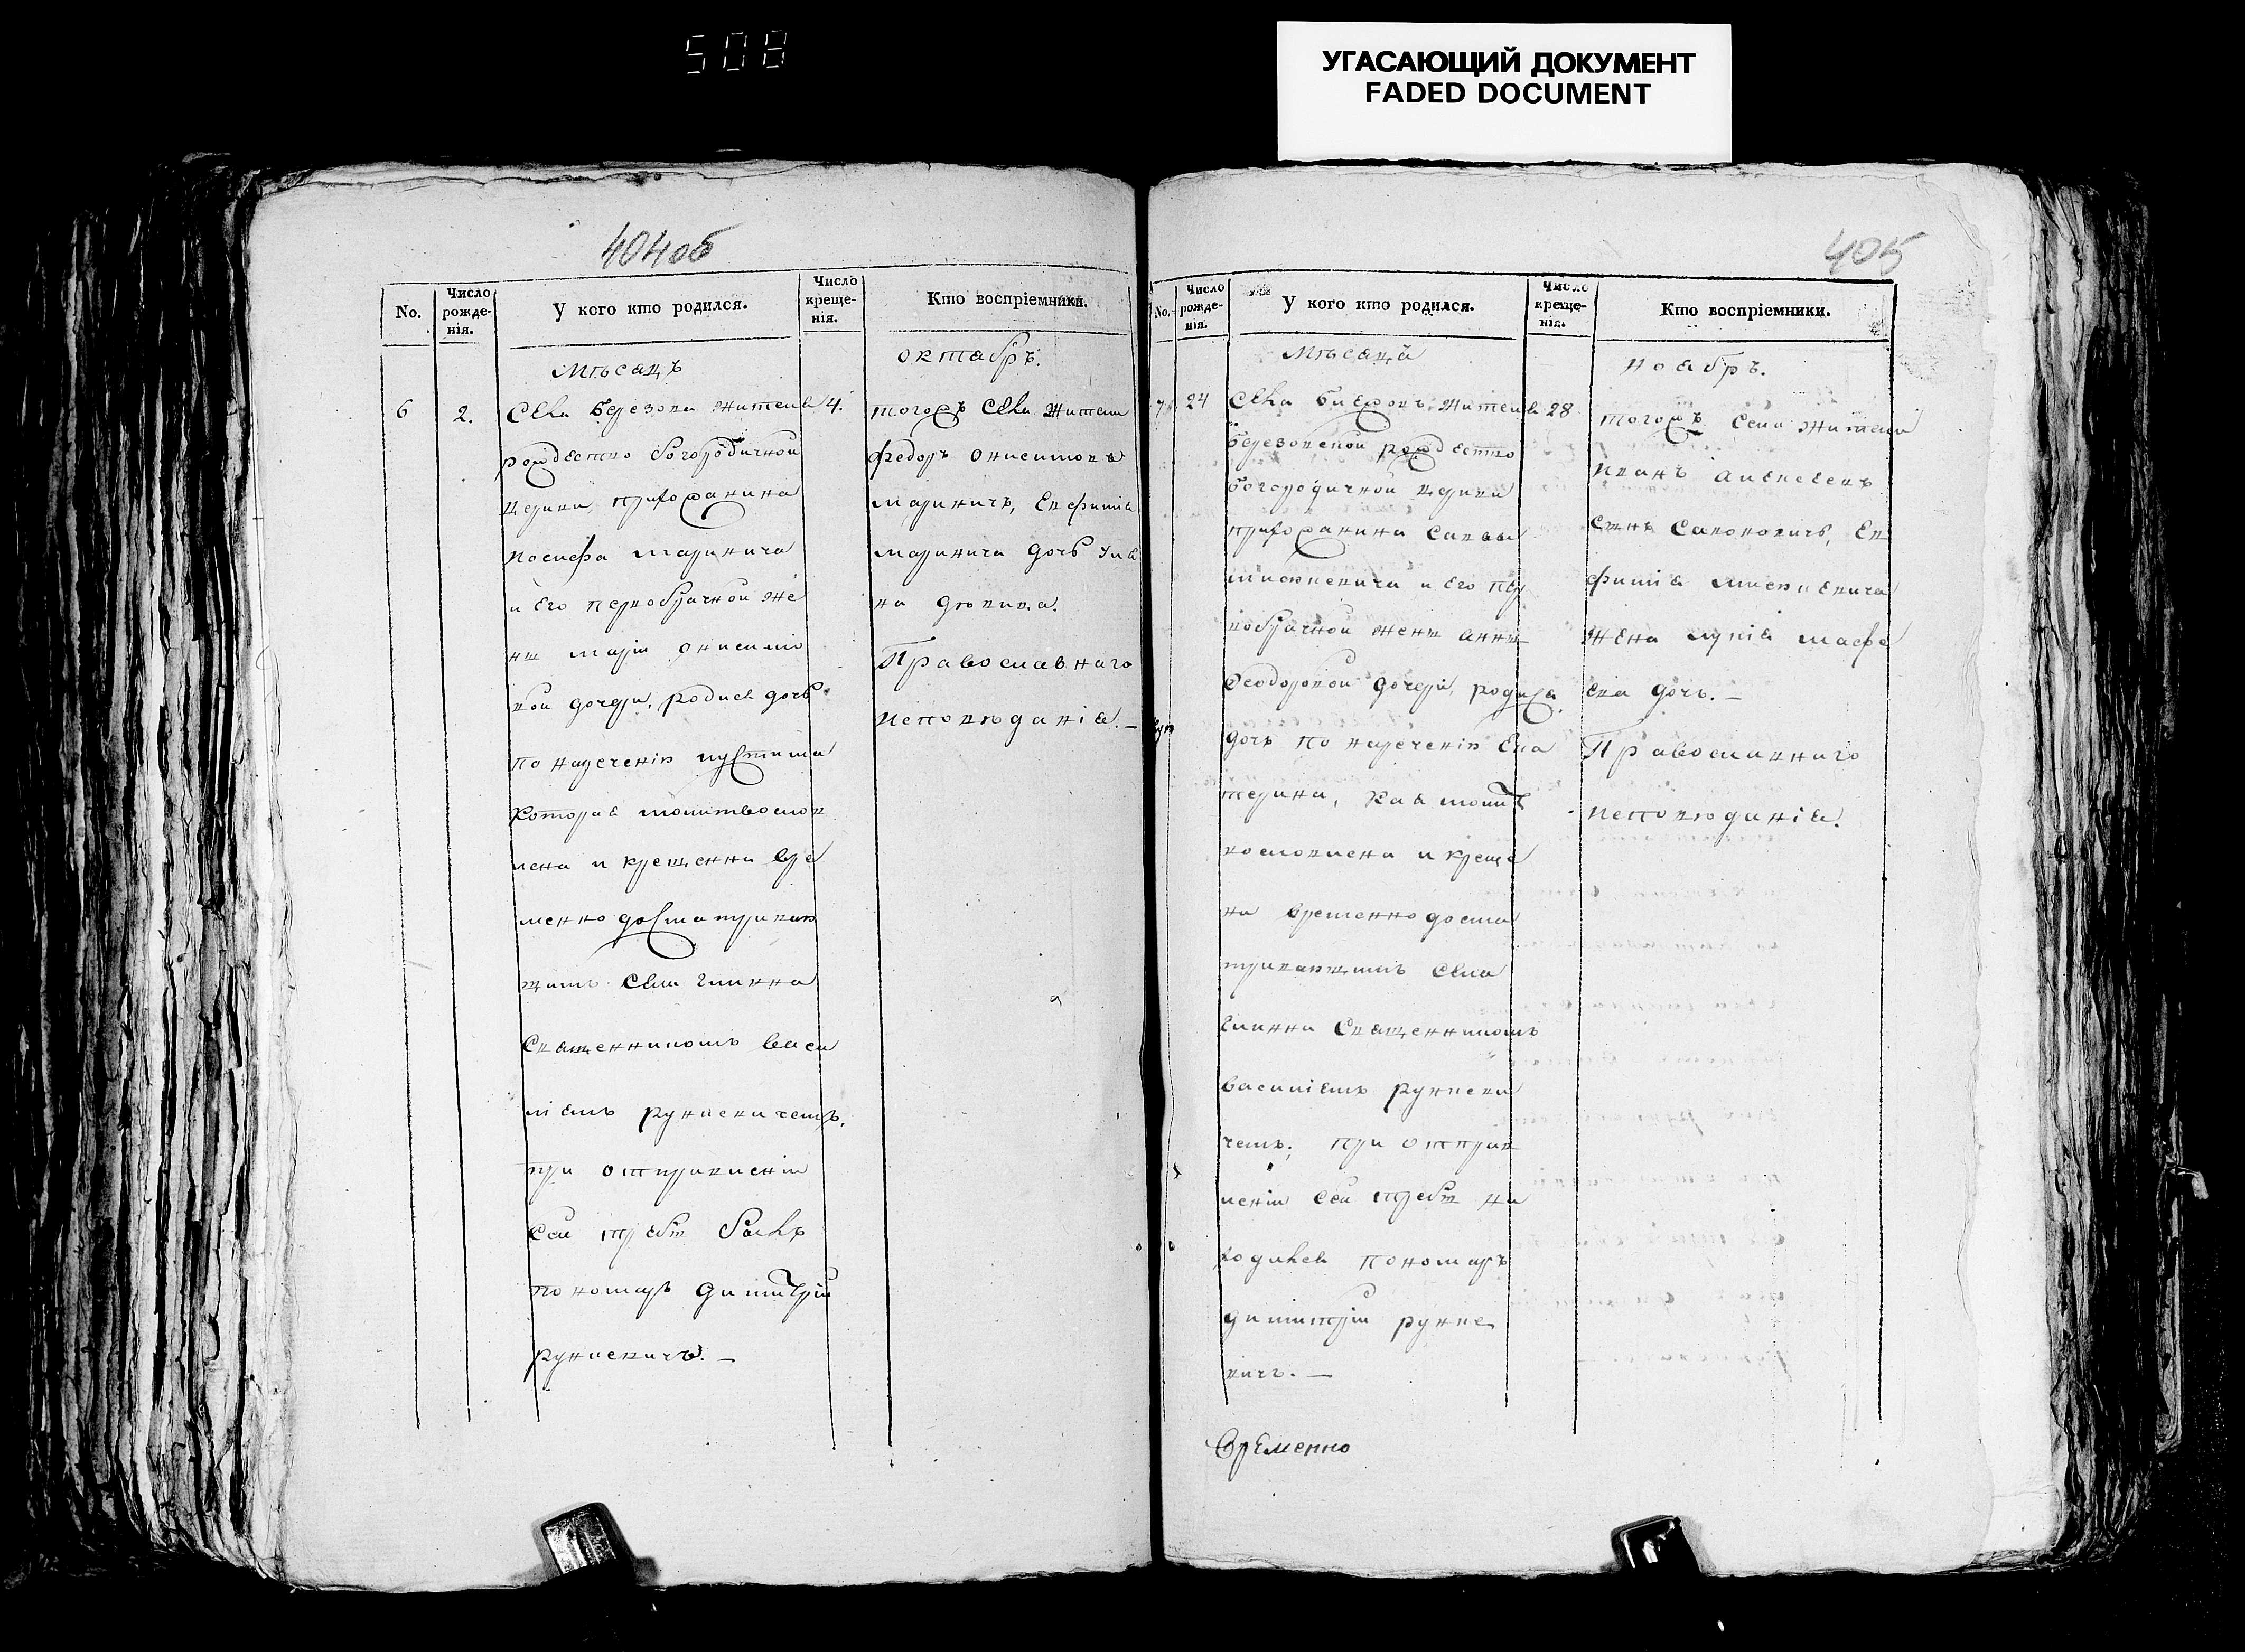 508
УГАСАЮЩИЙ ДОКУМЕНТ
FADED DOCUMENT
404об
No.
Число рожденія.
У кого кто родился.
Число крещенія.
Кто воспріемники.
Мѣсяцъ
октябръ.
6
2.
села березова жителя
рождество богородичной
церкви, прихожанина
иосифа маринича
и его первобрачной же
нѣ маріи онисимо
вой дочери, родися дочь
по наречению
которая молитвослов
лена и крещенна вре
менно достатривав
щимъ села глинна
священникомъ васи
ліемъ рункевичемъ.
при отправленіи
сей требѣ былъ
пономаръ димитрій
рункевичъ. —
4.
тогожъ села жители
федоръ онисимовъ
мариничъ, евфимія
маринича дочь
на девица.
Православнаго
исповѣданія. —
405
No.
Число рожденія.
У кого кто родился.
Число крещенія.
Кто воспріемники.
Мѣсяцъ
ноябръ.
7
24
села бижовъ жителя
березовской рождество
богородичной церкви
прихожанина саввы
мисюкевича и его пер
вобрачной женѣ аннѣ
Феодоровой дочери, родися
дочь по наречению ека
терина, кая молит
вословлена и креще
на временно доста
тривавщимъ села
глинна священникомъ
василіемъ рункеви
чемъ; при отправ
леніи сей требѣ на
ходился пономаръ
димитрій рунке
вичъ. —
28
тогожъ села жители
иванъ алексеевъ
сынъ сановичъ, ев
фимія мисюкевича
жена
ева дочь. —
Православнаго
исповѣданія.
Временно